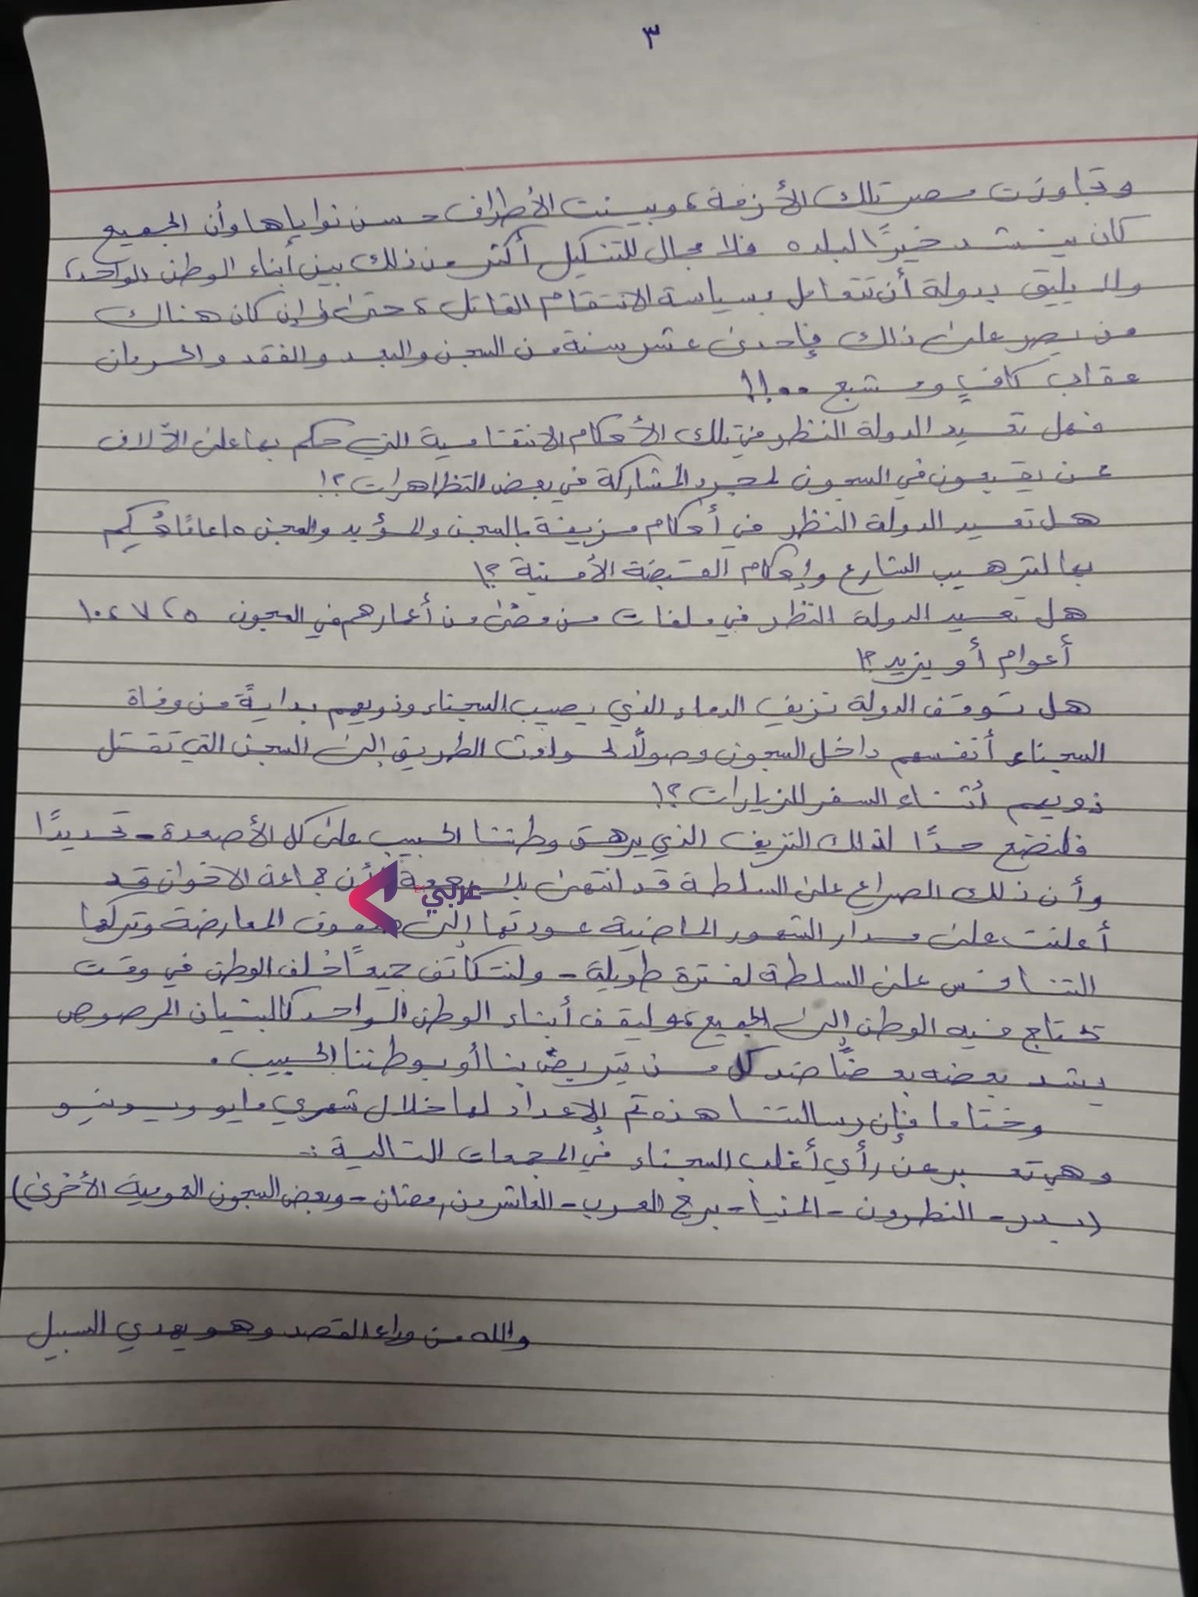 ٣
وتجاوزت مصر تلك الأزمة، وبينت الأطراف حسن نواياها وأن الجميع
كان ينشد خيرًا لبلده فلا مجال للتنكيل أكثر من ذلك بين أبناء الوطن الواحد،
ولا يليق بدولة أن تتعامل بسياسة الانتقام القاتل، حتى وإن كان هناك
من يصر على ذلك فإحدى عشر سنة من السجن والبعد والفقد والحرمان
عقاب كافٍ ومشبع ..!!
فهل تعيد الدولة النظر في تلك الأحكام الانتقامية التي حكم بها على الآلاف
عن يقبعون في السجون لمجرد المشاركة في بعض التظاهرات؟!
هل تعيد الدولة النظر في أحكام مزيفة بالسجن والمؤبد والسجن ١٥ عامًا حُكِم
بها لترهيب الشارع وإحكام القبضة الأمنية؟!
هل تعيد الدولة النظر في ملفات من مضى من أعمارهم في السجون ٥، ٧، ١٠
أعوام أو يزيد؟!
هل توقف الدولة نزيف الدماء الذي يصيب السجناء وذويهم بدايةً من وفاة
السجناء أنفسهم داخل السجون وصولًا لحوادث الطريق إلى السجن التي تقتل
ذويهم أثناء السفر للزيارات؟!
فلنضع حدًا لذلك النزيف الذي يرهق وطننا الحبيب على كل الأصعدة - تحديدًا
وأن ذلك الصراع على السلطة قد انتهى بلا رجعة لأن جماعة الاخوان قد
أعلنت على مدار الشهور الماضية عودتها إلى صفوف المعارضة وتركها
التنافس على السلطة لفترة طويلة - ولنتكاتف جميعًا خلف الوطن في وقت
يحتاج فيه الوطن إلى الجميع، وليقف أبناء الوطن الواحد كالبنيان المرصوص
يشد بعضه بعضًا ضد كل من يتربص بنا أو بوطننا الحبيب.
وختاما فإن رسالتنا هذه تم الإعداد لها خلال شهري مايو ويونيو
وهي تعبر عن رأي أغلب السجناء في الجهات التالية :-
(بدر - النطرون - المنيا - برج العرب - العاشر من رمضان - وبعض السجون العمومية الأخرى)
والله من وراء القصد وهو يهدي السبيل
عربي